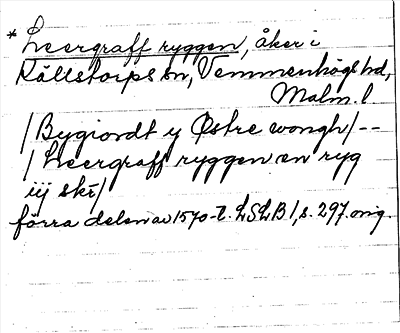 * Leergraff ryggen, åker i
Källstorps sn, Vemmenhögs hd,
Malm. l
/Bygiordt y Østre wongh/--
/Leergraff ryggen en ryg
iij skr/
förra delen av 1570-t. LSLB 1, s. 297. orig.